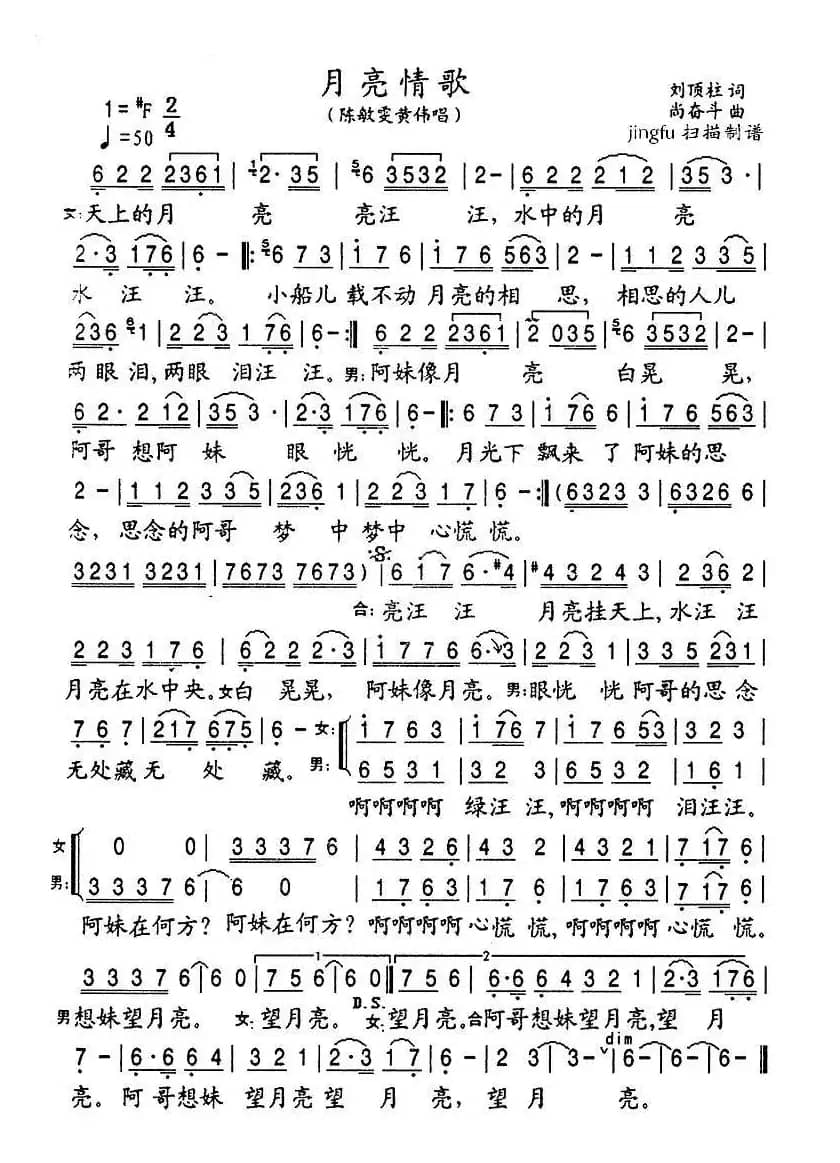 月亮情歌
（陈敏雯黄伟唱）
1=#F 2/4
♩=50
刘顶柱 词
尚奋斗 曲
jingfu 扫描制谱
6 2 2 2361 | 12· 35 | 56 3532 | 2 - | 6 2 2 2 1 2 | 35 3 · |
女:天上的月 亮 亮汪 汪, 水中的月 亮
2·3 176 | 6 - ‖: 56 7 3 | i 7 6 | i 7 6 563 | 2 - | 1 1 2 3 3 5 |
水 汪 汪。 小船儿 载不动 月亮的相 思, 相思的人儿
236 61 | 2 2 3 1 76 | 6 - :‖ 6 2 2 2361 | 2 035 | 56 3532 | 2 - |
两眼泪,两眼 泪汪 汪。男:阿妹像月 亮 白晃 晃,
6 2 · 2 12 | 35 3 · | 2·3 176 | 6 - ‖: 6 7 3 | i 76 6 | i 7 6 563 |
阿哥 想阿 妹 眼 恍 恍。 月光下 飘来 了 阿妹的思
2 - | 1 1 2 3 3 5 | 236 1 | 2 2 3 1 7 | 6 - :‖ (6323 3 | 6326 6 |
念, 思念的阿哥 梦 中梦中 心慌 慌。
3231 3231 | 7673 7673 ) | 6 i 7 6·#4 | #4 3 2 4 3 | 2 36 2 |
合: 亮汪 汪 月亮挂天上,水汪 汪
2 2 3 1 7 6 | 6 2 2 2·3 | i 7 7 6 6·3 | 2 2 3 1 | 3 3 5 2 3 1 |
月亮在水中央。女白 晃晃, 阿妹像月亮。男:眼恍 恍 阿哥的思念
7 6 7 | 217 675 | 6 - 女: i 7 6 3 | i 76 7 | i 7 6 53 | 3 2 3 |
男: 6 5 3 1 | 3 2 3 | 6 5 3 2 | 1 6 1 |
无处藏无 处 藏。
啊啊啊啊 绿汪 汪,啊啊啊啊 泪汪汪。
女 0 0 | 3 3 3 7 6 | 4 3 2 6 | 4 3 2 | 4 3 2 1 | 7 17 6 |
男: 3 3 3 7 6 | 6 0 | 1 7 6 3 | 1 7 6 | 1 7 6 3 | 7 17 6 |
阿妹在何方? 阿妹在何方? 啊啊啊啊心慌 慌,啊啊啊啊心慌 慌。
1 2
3 3 3 7 6 | 6 0 | 7 5 6 | 6 0 ‖ 7 5 6 | 6·6 6 4 3 2 1 | 2·3 176 |
D.S.
男想妹望月亮。 女:望月亮。 女:望月亮。合阿哥想妹望月亮,望 月
dim
7 - | 6·6 6 4 | 3 2 1 | 2·3 1 7 | 6 - | 2 3 | 3 6 - | 6 - | 6 - ‖
亮。阿哥想妹 望月亮望 月 亮, 望 月 亮。